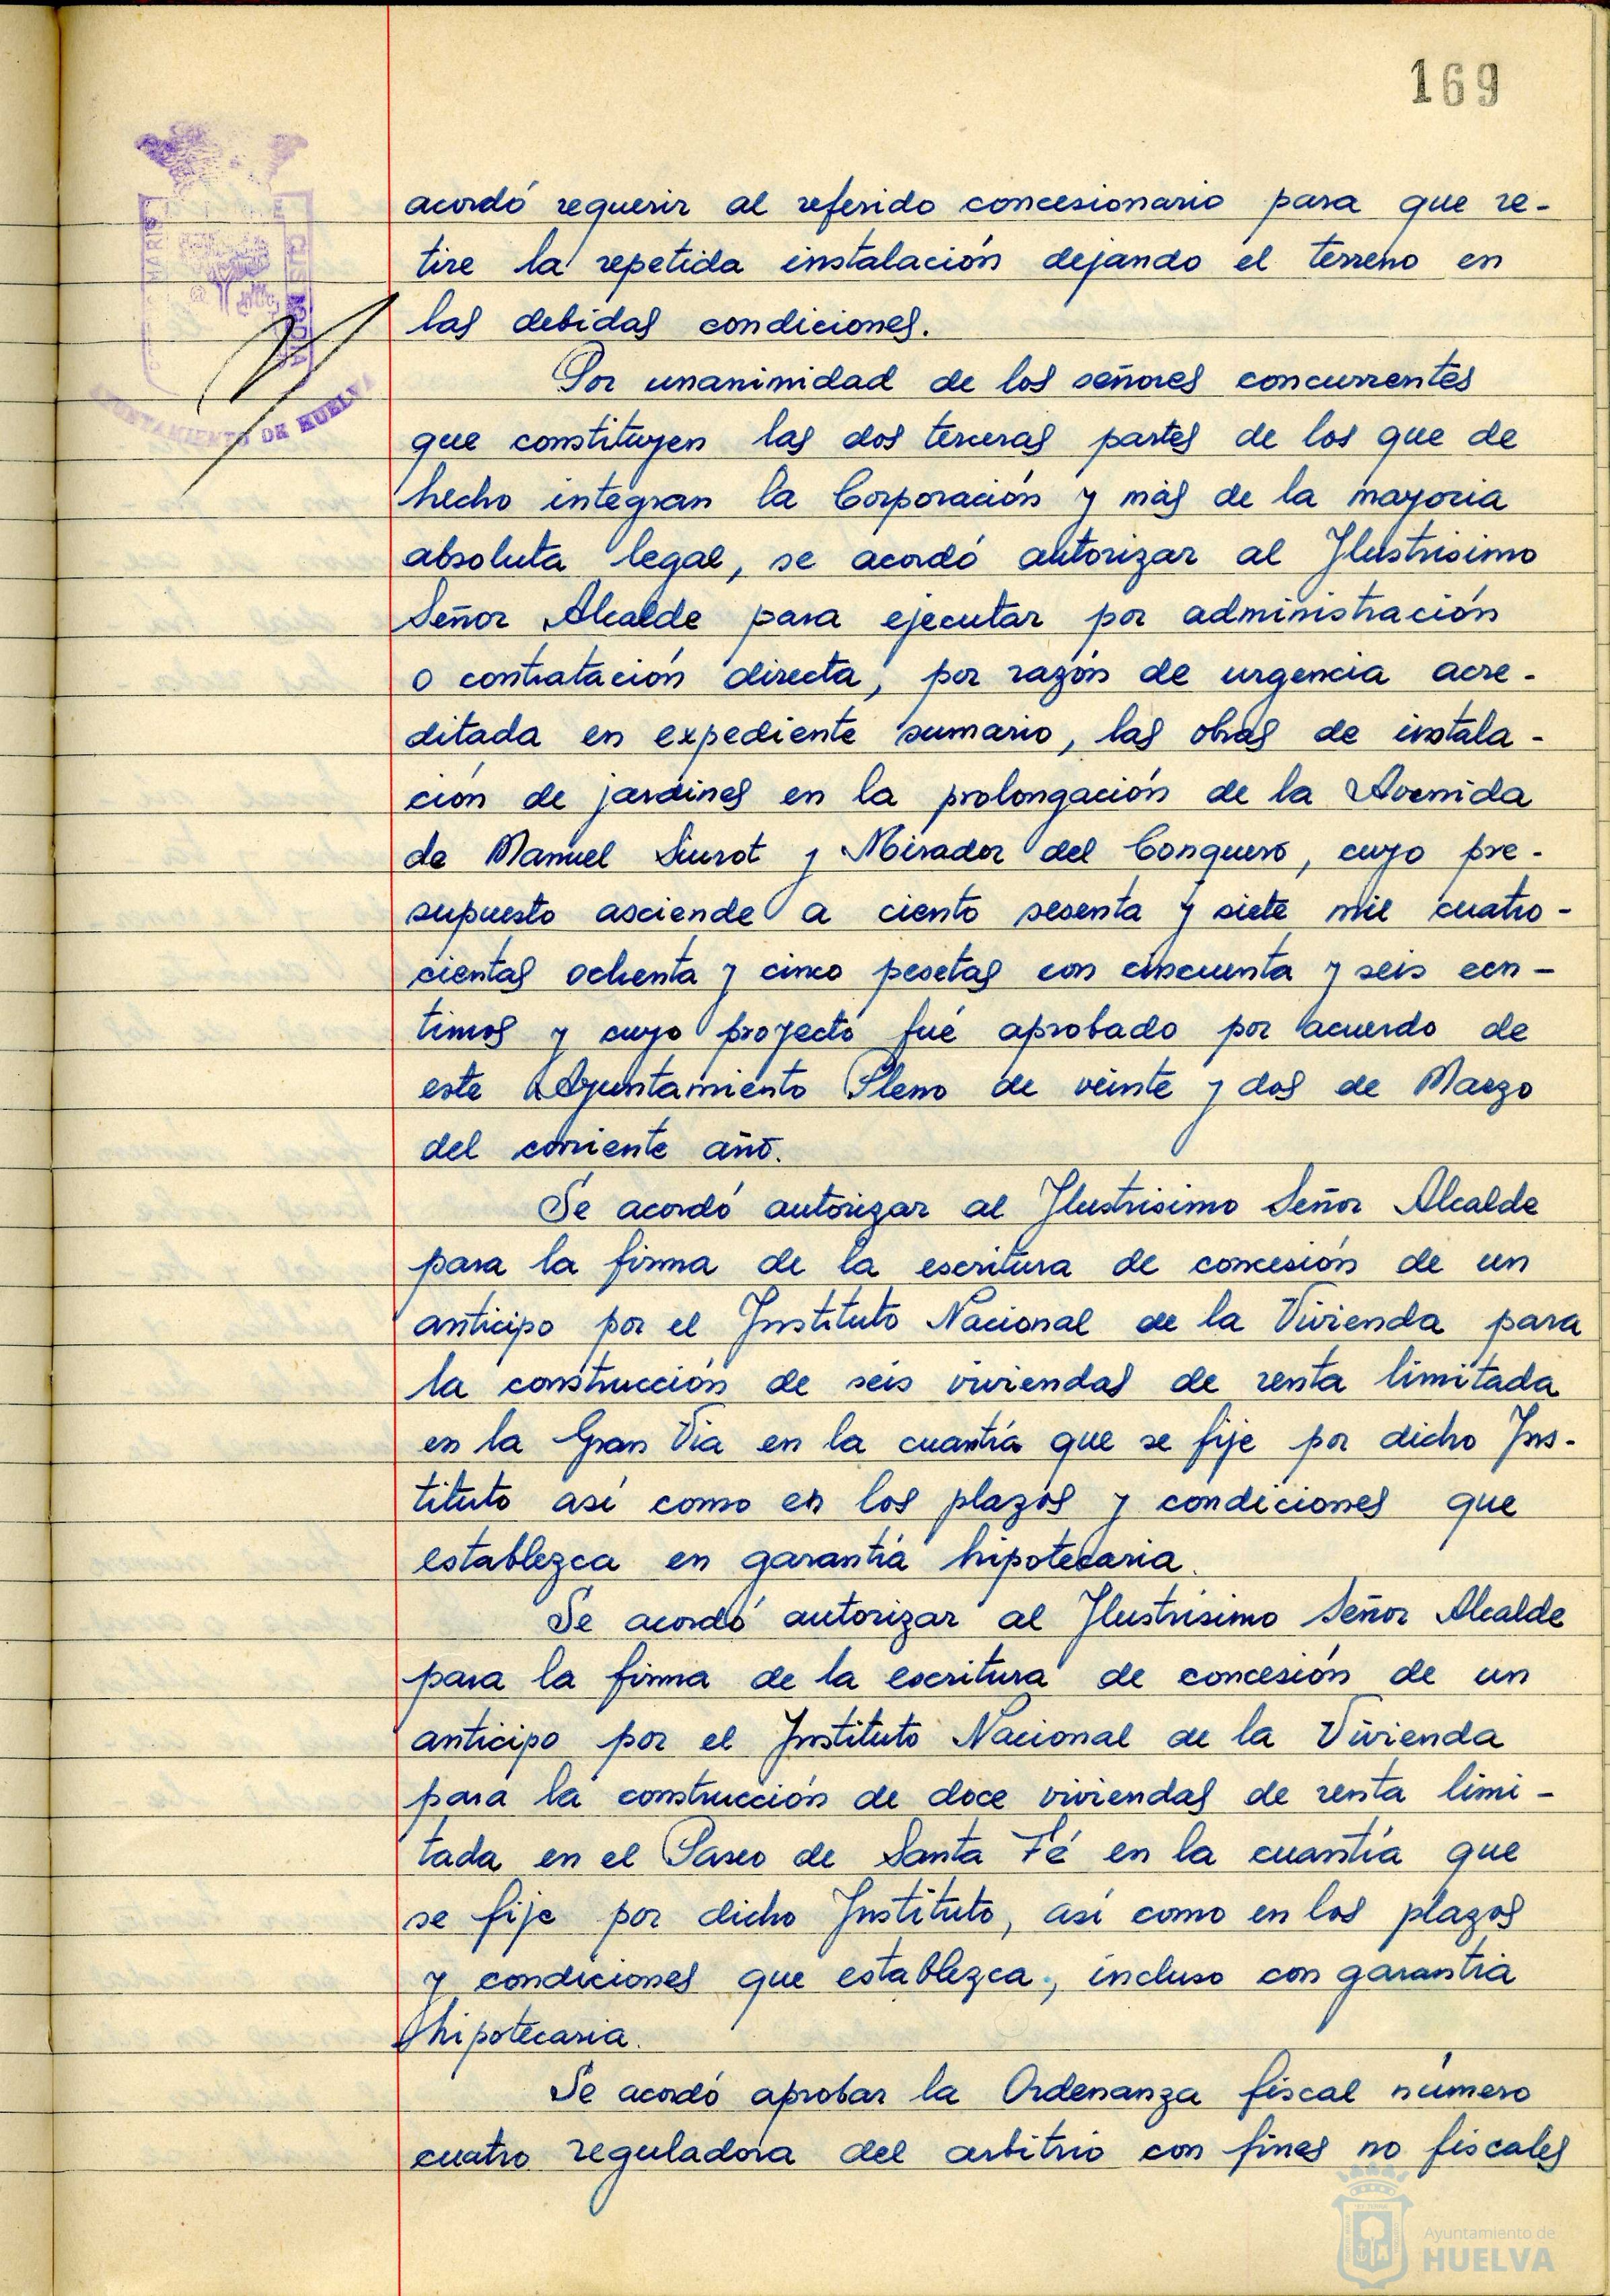 169
acordó requerir al referido concesionario para que re-
tire la repetida instalación dejando el terreno en
las debidas condiciones.
Por unanimidad de los señores concurrentes
que constituyen las dos terceras partes de los que de
hecho integran la Corporación y más de la mayoria
absoluta legal, se acordó autorizar al Ilustrisimo
Señor Alcalde para ejecutar por administración
o contratación directa, por razón de urgencia acre-
ditada en expediente sumario, las obras de instala-
ción de jardines en la prolongación de la Avenida
de Manuel Siurot y Mirador del Conquero, cuyo pre-
supuesto asciende a ciento sesenta y siete mil cuatro-
cientas ochenta y cinco pesetas con cincuenta y seis cen-
timos y cuyo proyecto fué aprobado por acuerdo de
este Ayuntamiento Pleno de veinte y dos de Marzo
del corriente año.
Se acordó autorizar al Ilustrisimo Señor Alcalde
para la firma de la escritura de concesión de un
anticipo por el Instituto Nacional de la Vivienda para
la construcción de seis viviendas de renta limitada
en la Gran Via en la cuantía que se fije por dicho Ins-
tituto asi como en los plazos y condiciones que
establezca en garantía hipotecaria.
Se acordó autorizar al Ilustrisimo Señor Alcalde
para la firma de la escritura de concesión de un
anticipo por el Instituto Nacional de la Vivienda
para la construcción de doce viviendas de renta limi-
tada en el Paseo de Santa Fé en la cuantía que
se fije por dicho Instituto, asi como en los plazos
y condiciones que establezca, incluso con garantia
hipotecaria.
Se acordó aprobar la Ordenanza fiscal número
cuatro reguladora del arbitrio con fines no fiscales
AYUNTAMIENTO DE HUELVA
Ayuntamiento de
HUELVA